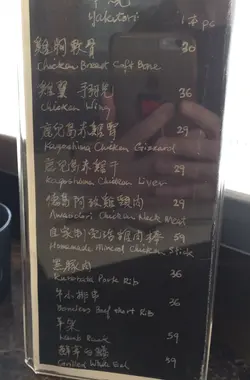 Yakatori
雞胸軟骨 30
Chicken Breast Soft Bone
雞翼 36
Chicken Wing
鹿兒島赤雞腎 29
Kagoshima Chicken Gizzard
鹿兒島赤雞干 29
Kagoshima Chicken Liver
29
Chicken Neck Meat
自家制 雞肉棒 59
Homemade Minced Chicken Stick
黑豚肉 36
Kurobuta Pork Rib
牛小排串 36
Boneless Beef Short Rib
羊架 59
Lamb Rack
39
Grilled White Eel